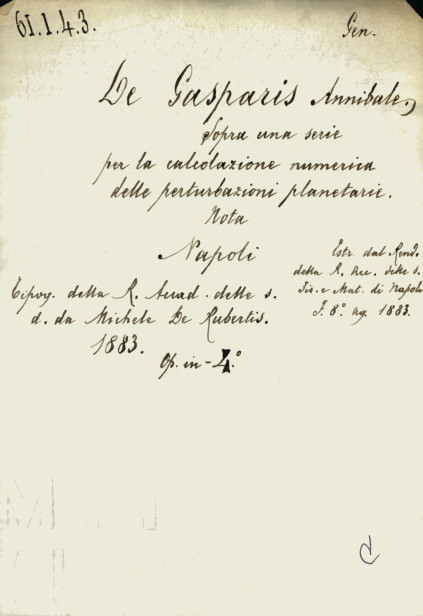 61.1.4.3.
Gen.
De Gasparis Annibale.
Sopra una serie
per la calcolazione numerica
delle perturbazioni planetarie.
Nota
Napoli
Tipog. della R. Accad. delle s.
d. da Michele De Rubertis.
1883.
Op. in-4.°
Estr. dal Rend.
della R. Acc. delle s.
Fis. e Mat. di Napoli
F. 8.° ag. 1883.